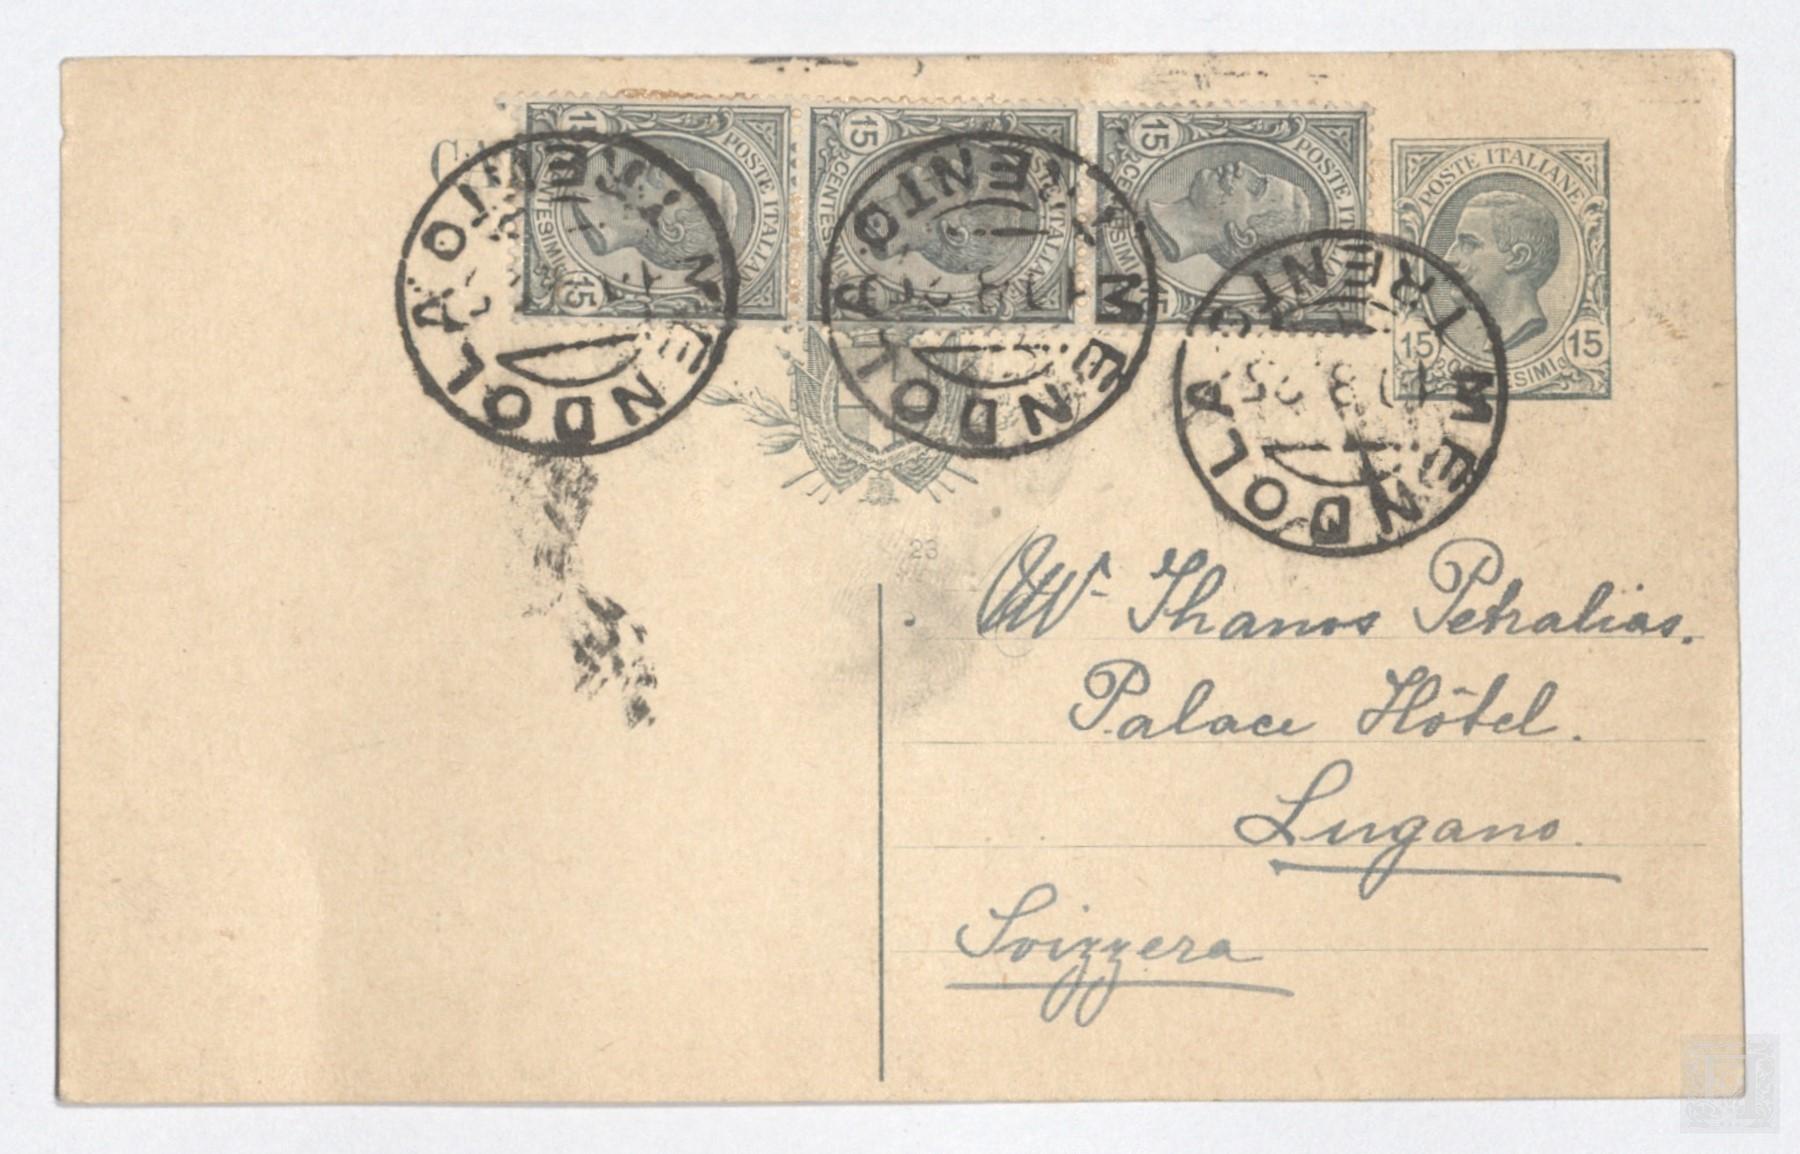 15 POSTE ITALIANE CENTESIMI 15
15 POSTE ITALIANE CENTESIMI
15 POSTE ITALIANE CENTESIMI 15
POSTE ITALIANE
15 CENTESIMI 15
MENDOLA TRENTO
MENDOLA TRENTO
MENDOLA TRENTO
23
Thanos Petralias.
Palace Hôtel.
Lugano.
Svizzera